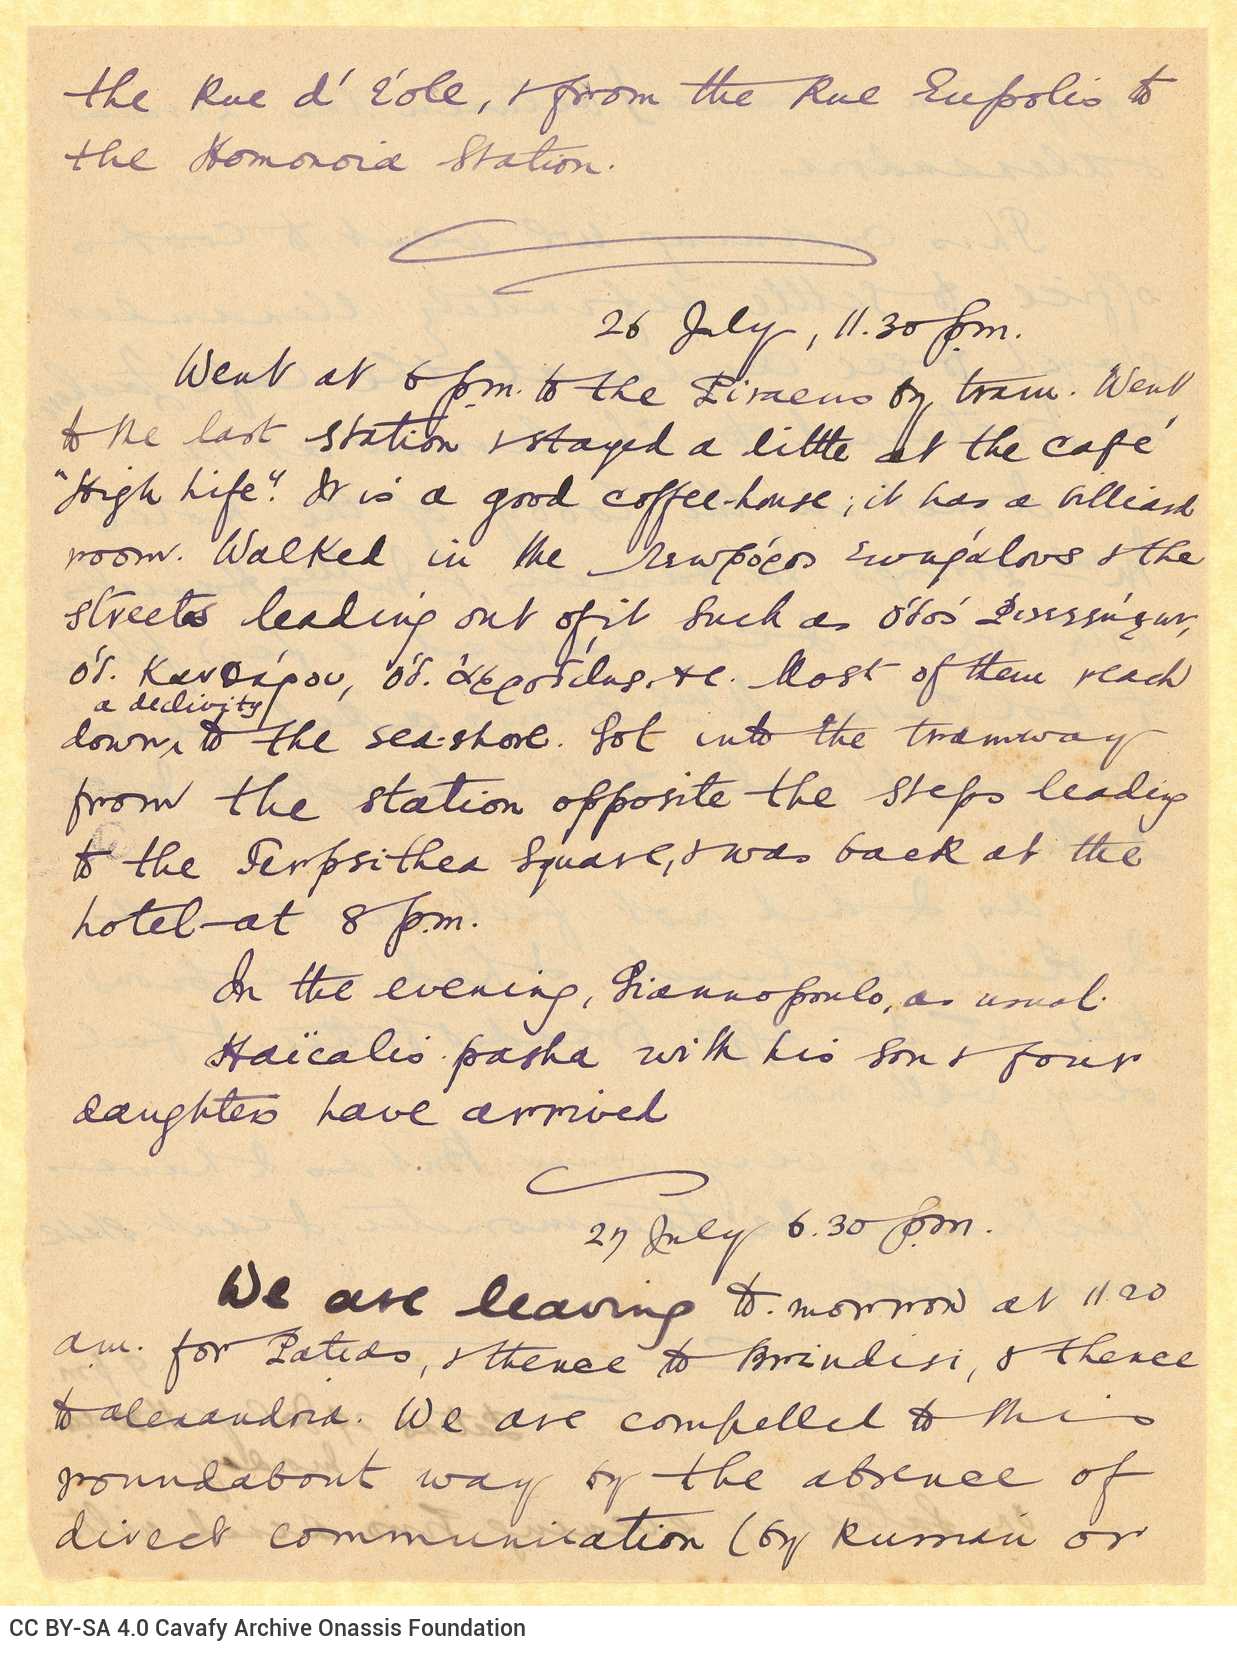 the Rue d' Éole, & from the Rue Eupolis to
the Homonoia Station.
26 July, 11.30 p.m.
Went at 6 p.m. to the Piraeus by tram. Went
to the last station & stayed a little at the café
"High Life". It is a good coffee-house; it has a billiard
room. Walked in the Λεωφόρος Σωκράτους & the
streets leading out of it such as ὁδός
ὁδ. Κανθάρου, ὁδ. Ἀφροδίτης, &c. Most of them reach
a declivity
down to the sea-shore. Got into the tramway
from the station opposite the steps leading
to the Terpsithea Square, & was back at the
hotel at 8 p.m.
In the evening, Giannopoulo, as usual.
Haïcalis pasha with his son & four
daughters have arrived
27 July 6.30 p.m.
We are leaving to-morrow at 11.20
a.m. for Patras, & thence to Brindisi, & thence
to Alexandria. We are compelled to this
roundabout way by the absence of
direct communication (by Russian or
CC BY-SA 4.0 Cavafy Archive Onassis Foundation